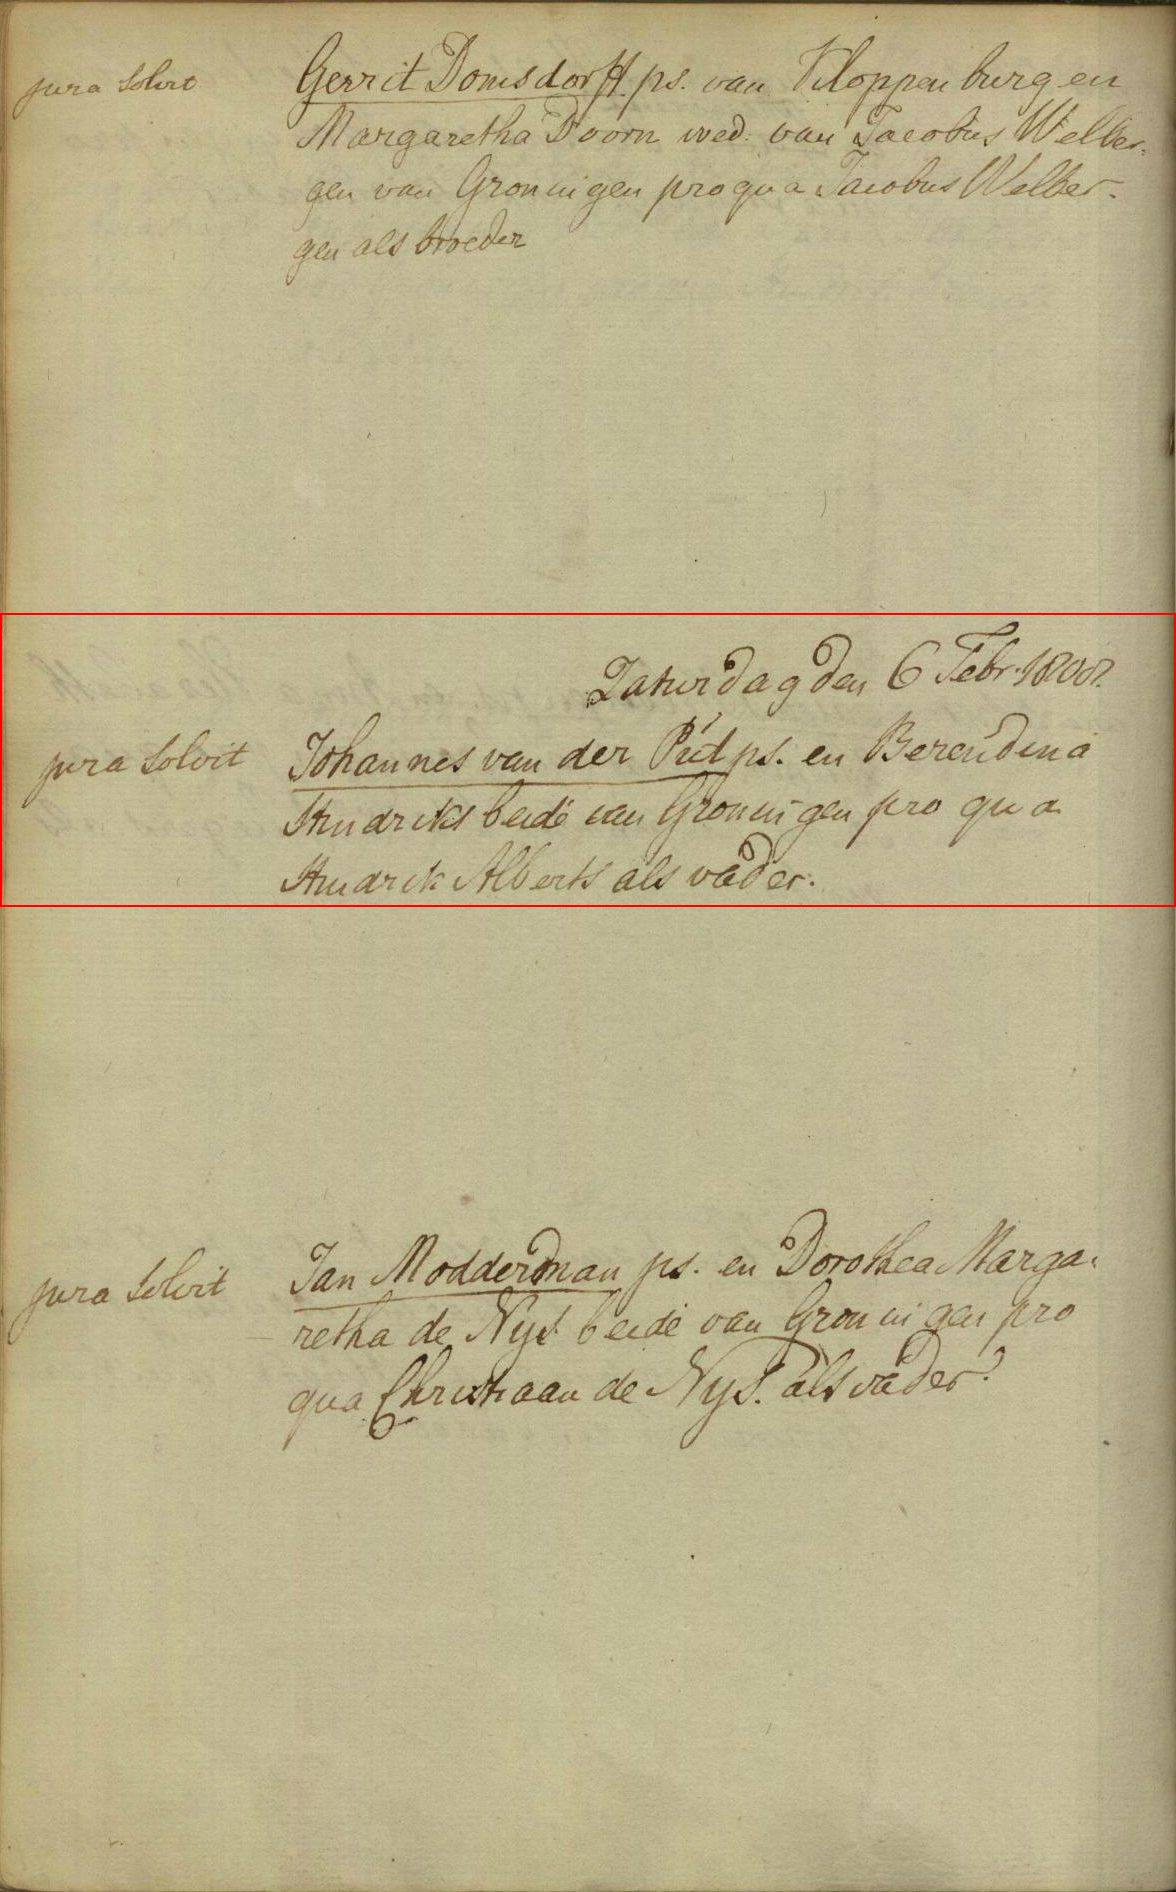 jura solvit
Gerrit Domsdorff ps. van Kloppenburg en
Margaretha Doorn wed. van Jacobus Welber-
gen van Groningen pro qua Jacobus Welber-
gen als broeder
Zaturdag den 6 Febr. 1808.
jura solvit
Johannes van der Put ps. en Berendina
Hindriks beide van Groningen pro qua
Hindrik Alberts als vader.
jura solvit
Jan Modderman ps. en Dorothea Marga-
retha de Nys beide van Groningen pro
qua Christiaan de Nys. als vader.